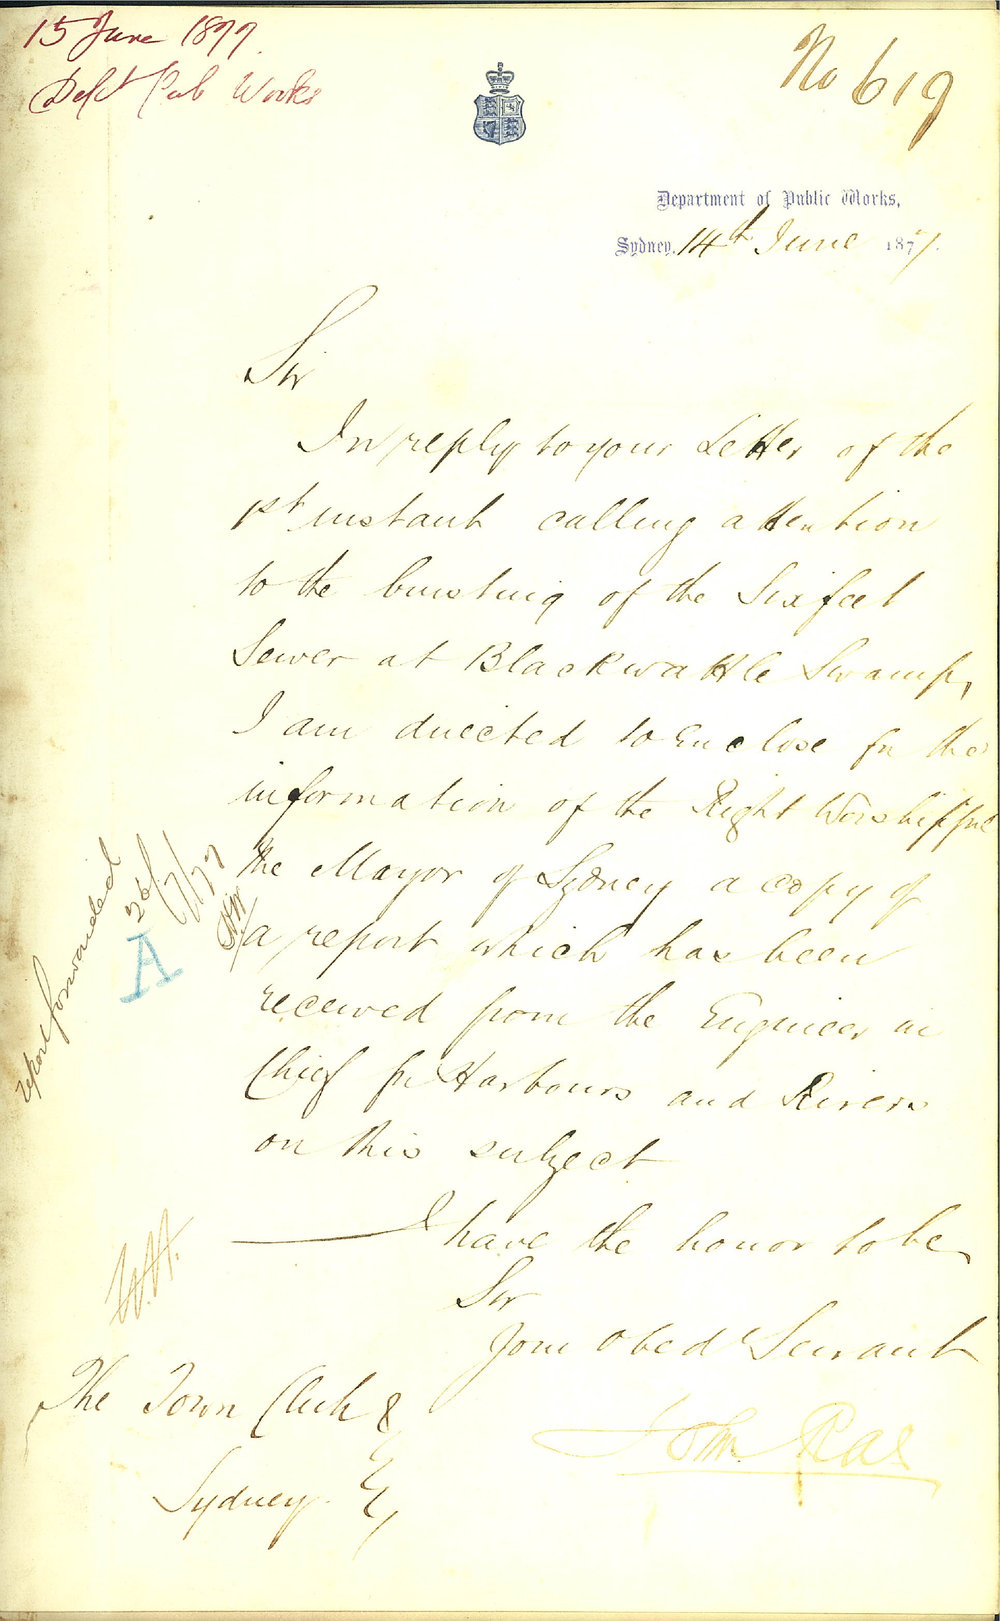 15 June 1877
Dept Pub Works
No 619
Department of Public Works,
Sydney, 14th June 1877.
Sir
In reply to your Letter of the
1st instant calling attention
to the bursting of the Six feet
Sewer at Blackwattle Swamp,
I am directed to enclose for the
information of the Right Worshipful
the Mayor of Sydney a copy of
a report which has been
received from the Engineer in
Chief for Harbours and Rivers
on this subject
I have the honor to be,
Sir
Your Obed Servant
John Rae
The Town Clerk &
Sydney. &,
report forwarded
26/7/77
A
W.H.